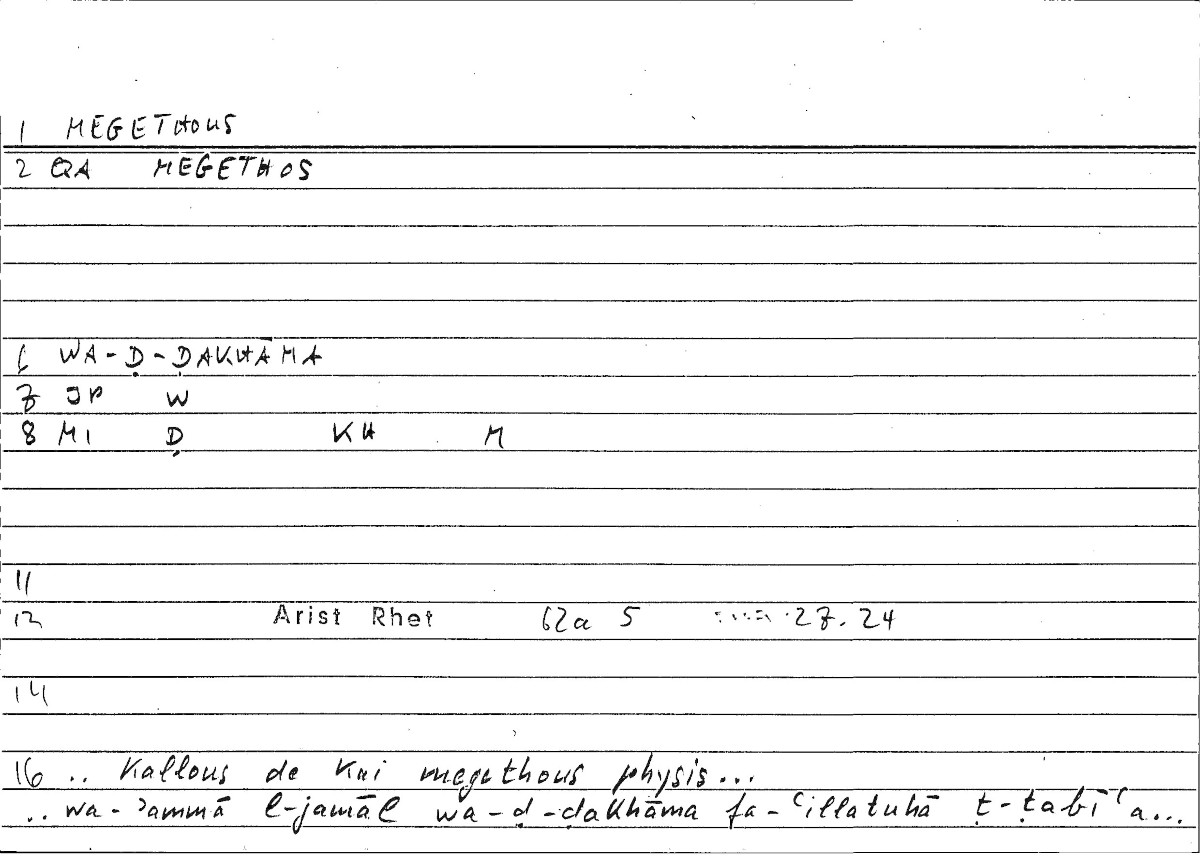 1 MEGETHOUS
2 QA MEGETHOS
6 WA-Ḍ-ḌAKHĀMA
7 JP W
8 MI Ḍ KH M
11
12 Arist Rhet 62a 5 27.24
14
16 .. Kallous de kai megethous physis...
.. wa-ʾammā l-jamāl wa-ḍ-ḍakhāma fa-ʿillatuhā ṭ-ṭabīʿa...